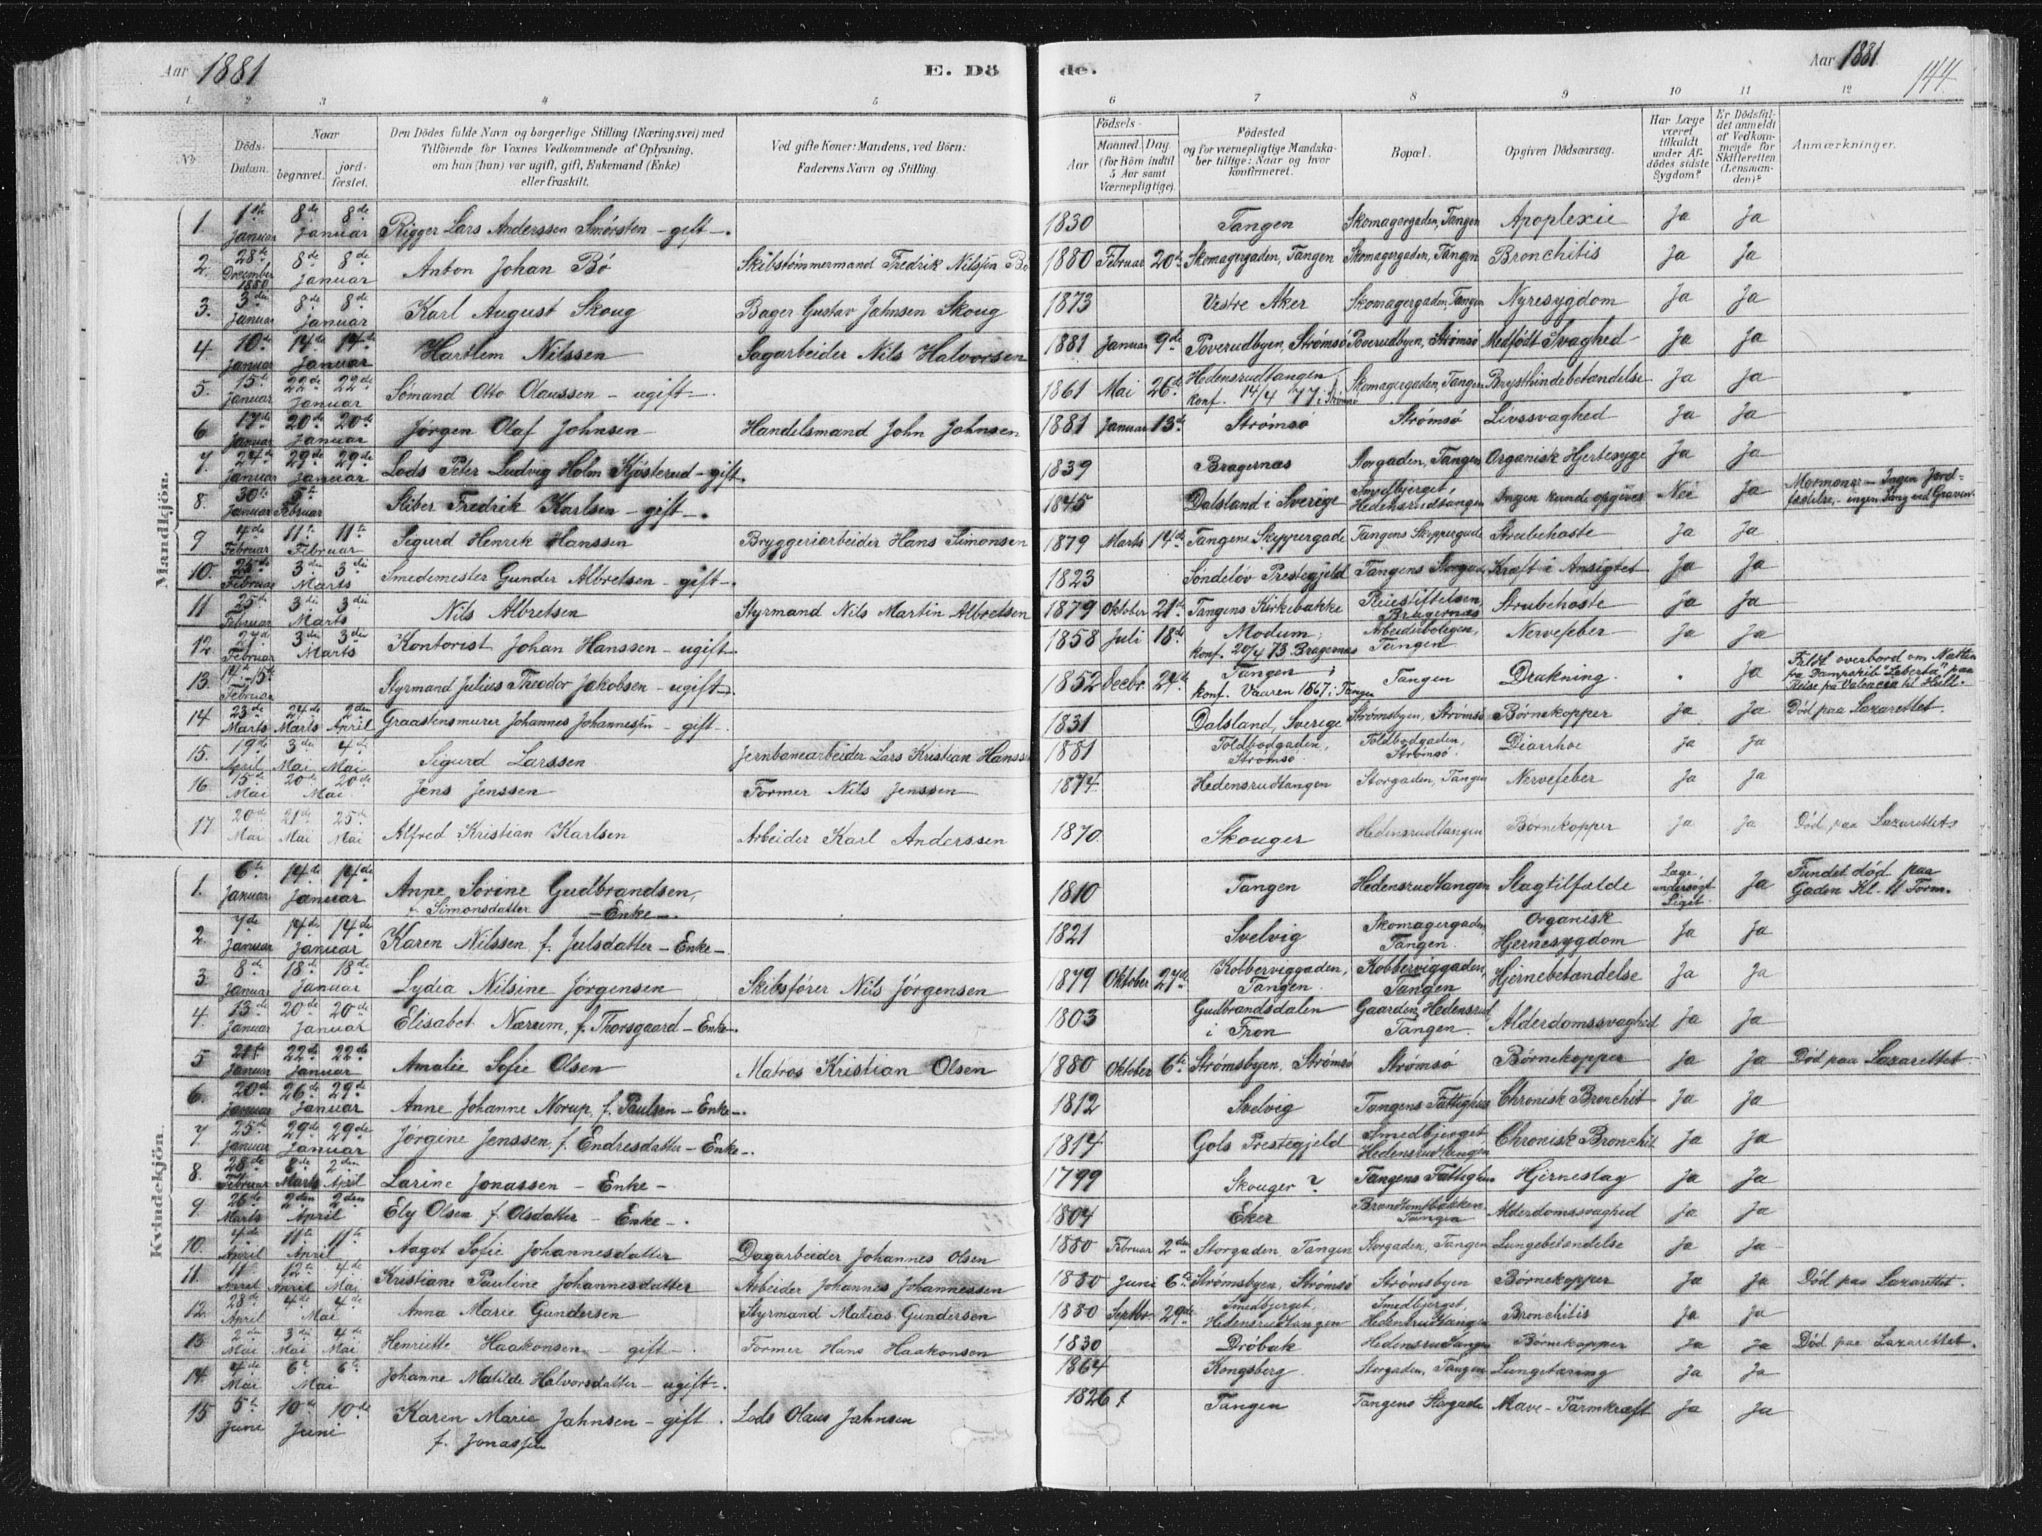 Aar 1881 E. Dö de. Aar 1881. 144.
1 2 3 4 5 6 7 8 9 10 11 12
No. Döds-Datum. Naar begravet. jordfæstet. Den Dödes fulde Navn og borgerlige Stilling (Næringsvei) med Tilföiende for Voxnes Vedkommende af Oplysning, om han (hun) var ugift, gift, Enkemand (Enke) eller fraskilt. Ved gifte Koner: Mandens, ved Börn: Faderens Navn og Stilling. Födsels- Aar Maaned. Dag. (for Börn indtil 5 Aar samt Værnepligtige). Födested og for værnepligtige Mandskaber tillige: Naar og hvor konfirmeret. Bopæl. Opgiven Dödsaarsag. Har Læge været tilkaldt under Afdödes sidste Sygdom? Er Dödsfaldet anmeldt af Vedkommende for Skifteretten (Lensmanden)? Anmærkninger.
Mandkjön.
1. 1te Januar 8de 8de Januar Rigger Lars Anderssen Smörsten – gift –. 1830 Tangen Skomagergaden, Tangen Apoplexie Ja Ja
2. 28de December 1880 8de 8de Januar Anton Johan Bö Skibstömmermand Fredrik Nilssen Bö 1880 Februar 20de Skomagergaden, Tangen Skomagergaden, Tangen Bronchitis Ja Ja
3. 3die Januar 8de 8de Januar Karl August Skoug Bager Gustav Jahnsen Skoug 1873 Vestre Aker Skomagergaden, Tangen Nyresygdom Ja Ja
4. 10de Januar 14de 14de Januar Hartlem Nilssen Sagarbeider Nils Halvorsen 1881 Januar 9de Poverudbyen, Strømsø Poverudbyen, Strømsø Medfödt Svaghed Ja Ja
5. 15de Januar 22de 22de Januar Sömand Otto Olaussen – ugift –. 1861 Mai 26de Hedensrudtangen konf. 14/4 77 i Strømsø Skomagergaden, Tangen Brysthindebetændelse Ja Ja
6 17de Januar 20de 20de Januar Jørgen Olaf Johnsen Handelsmand John Johnsen 1881 Januar 13de Strømsø Strømsø Livssvaghed Ja Ja
7. 24de Januar 29de 29de Januar Lods Peter Ludvig Holm Kjösterud – gift. 1839 Bragernæs Storgaden, Tangen Organisk Hjertesyge Ja Ja
8. 30te Januar 5te Februar Stiber Fredrik Karlsen – gift –. 1845 Dalsland i Sverige Smedbjerget, Hedensrudtangen Ingen kunde opgives Nei Ja Mormoner – Ingen Jordfæstelse, – ingen Sang ved Graven.
9 4de Februar 11te 11te Februar Sigurd Henrik Hanssen Bryggeriarbeider Hans Simonsen 1879 Marts 14de Tangens Skippergade Tangens Skippergade Strubehoste Ja Ja
10. 25de Februar 3die 3die Marts Smedemester Gunder Albretsen – gift –. 1823 Søndeløv Prestegjeld Tangens Storgade Kræft i Ansigtet Ja Ja
11 25de Februar 3die 3die Marts Nils Albretsen Styrmand Nils Martin Albretsen 1879 Oktober 21de Tangens Kirkebakke Riiestiftelsen, Bragernæs Strubehoste Ja Ja
12. 27de Februar 3die 3die Marts Kontorist Johan Hanssen – ugift 1858 Juli 18de Modum, konf. 20/4 73 Bragernæs Arbeiderboligen, Tangen Nervefeber Ja Ja
13. 14de – 15de Februar Styrmand Julius Theodor Jakobsen – ugift –. 1852 Decbr. 24de Tangen, konf. Vaaren 1867 i Tangen Tangen Drukning. Ja Faldt overbord om Natten fra Dampskib "Liberta" paa Reise fra Valencia til Hull.
14 23de Marts 24de Marts 2den April Graastensmurer Johannes Johannessen – gift –. 1831 Dalsland, Sverige Strømsbyen, Strømsø Børnekopper Ja Ja Død paa Lazarettet.
15. 19de April 3die Mai 4de Mai Sigurd Larssen Jernbanearbeider Lars Kristian Hanssen 1881 Toldbodgaden, Strømsø Toldbodgaden, Strømsø. Diarrhoe Ja Ja
16. 15de Mai 20de 20de Mai Jens Jenssen Former Nils Jenssen 1874 Hedensrudtangen Storgaden, Tangen Nervefeber Ja Ja
17 20de Mai 21de Mai 25de Mai Alfred Kristian Karlsen Arbeider Karl Anderssen 1870. Skouger Hedensrudtangen Børnekopper Ja Ja Død paa Lazarettet
Kvindekjön
1. 6te Januar 14de 14de Januar Anne Sørine Gudbrandsen, f. Simonsdatter – Enke –. 1810 Tangen Hedensrudtangen Slagtilfælde Læge undersøgt Liget. Ja Fundet død paa Gaden Kl. 11 Form.
2. 7de Januar 14de 14de Januar Karen Nilssen, f. Juelsdatter – Enke – 1821 Svelvig Skomagergaden, Tangen. Organisk Hjernesygdom Ja Ja
3 8de Januar 18de 18de Januar Lydia Nilsine Jørgensen Skibsfører Nils Jørgensen 1879 Oktober 27de Kobberviggaden, Tangen. Kobberviggaden, Tangen Hjernebetændelse Ja Ja
4. 13de Januar 20de 20de Januar Elisabet Nærum, f. Thorsgaard – Enke –. 1803 Gudbrandsdalen i Fron Gaarden Hedensrud Tangen. Alderdomssvaghed Ja Ja
5 21de Januar 22de 22de Januar Amalie Sofie Olsen Matros Kristian Olsen 1880 Oktober 6te Strømsbyen, Strømsø Strømsø Børnekopper Ja Ja Død paa Lazarettet.
6. 20de Januar 26de 29de Januar Anne Johanne Norup, f. Paulsen – Enke –. 1812 Svelvig Tangens Fattighus Chronisk Bronchit Ja Ja
7. 25de Januar 29de 29de Januar Jørgine Jenssen, f. Endresdatter – Enke –. 1814 Gols Prestegjeld Smedbjerget, Hedensrudtangen Chronisk Bronchit Ja Ja
8. 28de Februar 8de Marts 2den April Larine Jonassen – Enke – 1799 Skouger ? Tangens Fattighus Hjerneslag Ja Ja
9. 26de Marts 2den 2den April Ely Olsen f. Olsdatter – Enke –. 1804 Eker Brandtomtbakken Tangen Alderdomssvaghed Ja Ja
10. 4de April 11te 11te April Aagot Sofie Johannesdatter Dagarbeider Johannes Olsen 1880 Februar 2den Storgaden, Tangen Storgaden, Tangen Lungebetændelse Ja Ja
11. 11 April 12te April 4de Mai Kristiane Pauline Johannesdatter Arbeider Johannes Johannessen 1880 Juni 6te Strømsbyen, Strømsø Strømsbyen Børnekopper Ja Ja Død paa Lazarettet.
12. 28de April 4de 4de Mai Anna Marie Gundersen Styrmand Matias Gundersen 1880 Septbr. 29de Smedbjerget, Hedensrudtangen Smedbjerget, Hedensrudtangen Bronchitis Ja Ja
13 2den Mai 3die Mai 4de Mai Henriette Haakonsen – gift –. Former Hans Haakonsen 1830 Drøbak Hedensrudtangen Børnekopper Ja Ja Død paa Lazarettet.
14. 4de Mai 6te 6te Mai Johanne Matilde Halvorsdatter – ugift –. 1864 Kongsberg Storgaden, Tangen Lungetæring Ja Ja
15 5te Juni 10de 10de Juni Karen Marie Jahnsen – gift. f. Jonassen Lods Olaus Jahnsen 1826 Tangen Tangens Storgade Mave-Tarmkræft Ja Ja